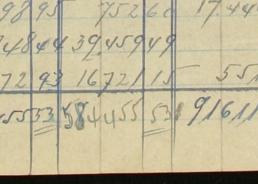 98 95 752 60 17.44
484 44 39.459 49
72 93 16721 15 551
455 33 584455 53 91611